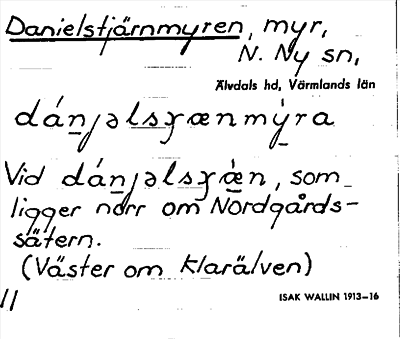 Danielstjärnmyren, myr,
N. Ny sn,
Älvdals hd, Värmlands län
dánjəlsɣænmýra
Vid dánjəlsɣæ̀n, som
ligger norr om Nordgårds-
sätern.
(Väster om Klarälven)
11
ISAK WALLIN 1913–16